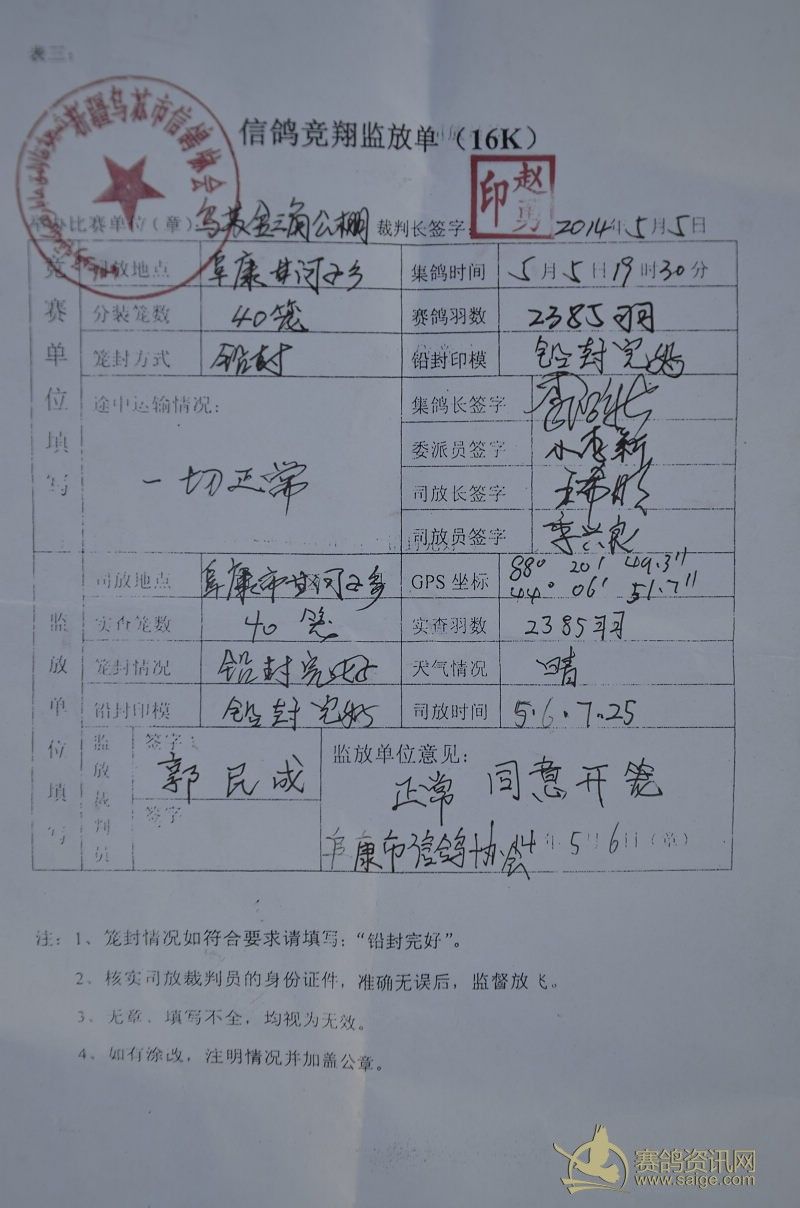 表三：
新疆乌苏市信鸽协会
信鸽竞翔监放单（16K）
举办比赛单位（章）乌苏金三角公棚 裁判长签字： 赵勇印 2014年5月5日
竞赛单位填写
司放地点 阜康甘河子乡 集鸽时间 5月5日19时30分
分装笼数 40笼 赛鸽羽数 2385羽
笼封方式 铅封 铅封印模 铅封完好
途中运输情况： 一切正常
集鸽长签字
委派员签字
司放长签字
司放员签字 李兴良
监放单位填写
司放地点 阜康市甘河子乡 GPS坐标 88° 20′ 49.3″
44° 06′ 51.7″
实查笼数 40笼 实查羽数 2385羽
笼封情况 铅封完好 天气情况 晴
铅封印模 铅封完好 司放时间 5.6.7.25
监放裁判员 签字： 郭民成
签字
监放单位意见：
正常 同意开笼
阜康市信鸽协会 14年5月6日（章）
注：1、笼封情况如符合要求请填写：“铅封完好”。
2、核实司放裁判员的身份证件，准确无误后，监督放飞。
3、无章、填写不全，均视为无效。
4、如有涂改，注明情况并加盖公章。
赛鸽资讯网
www.saige.com